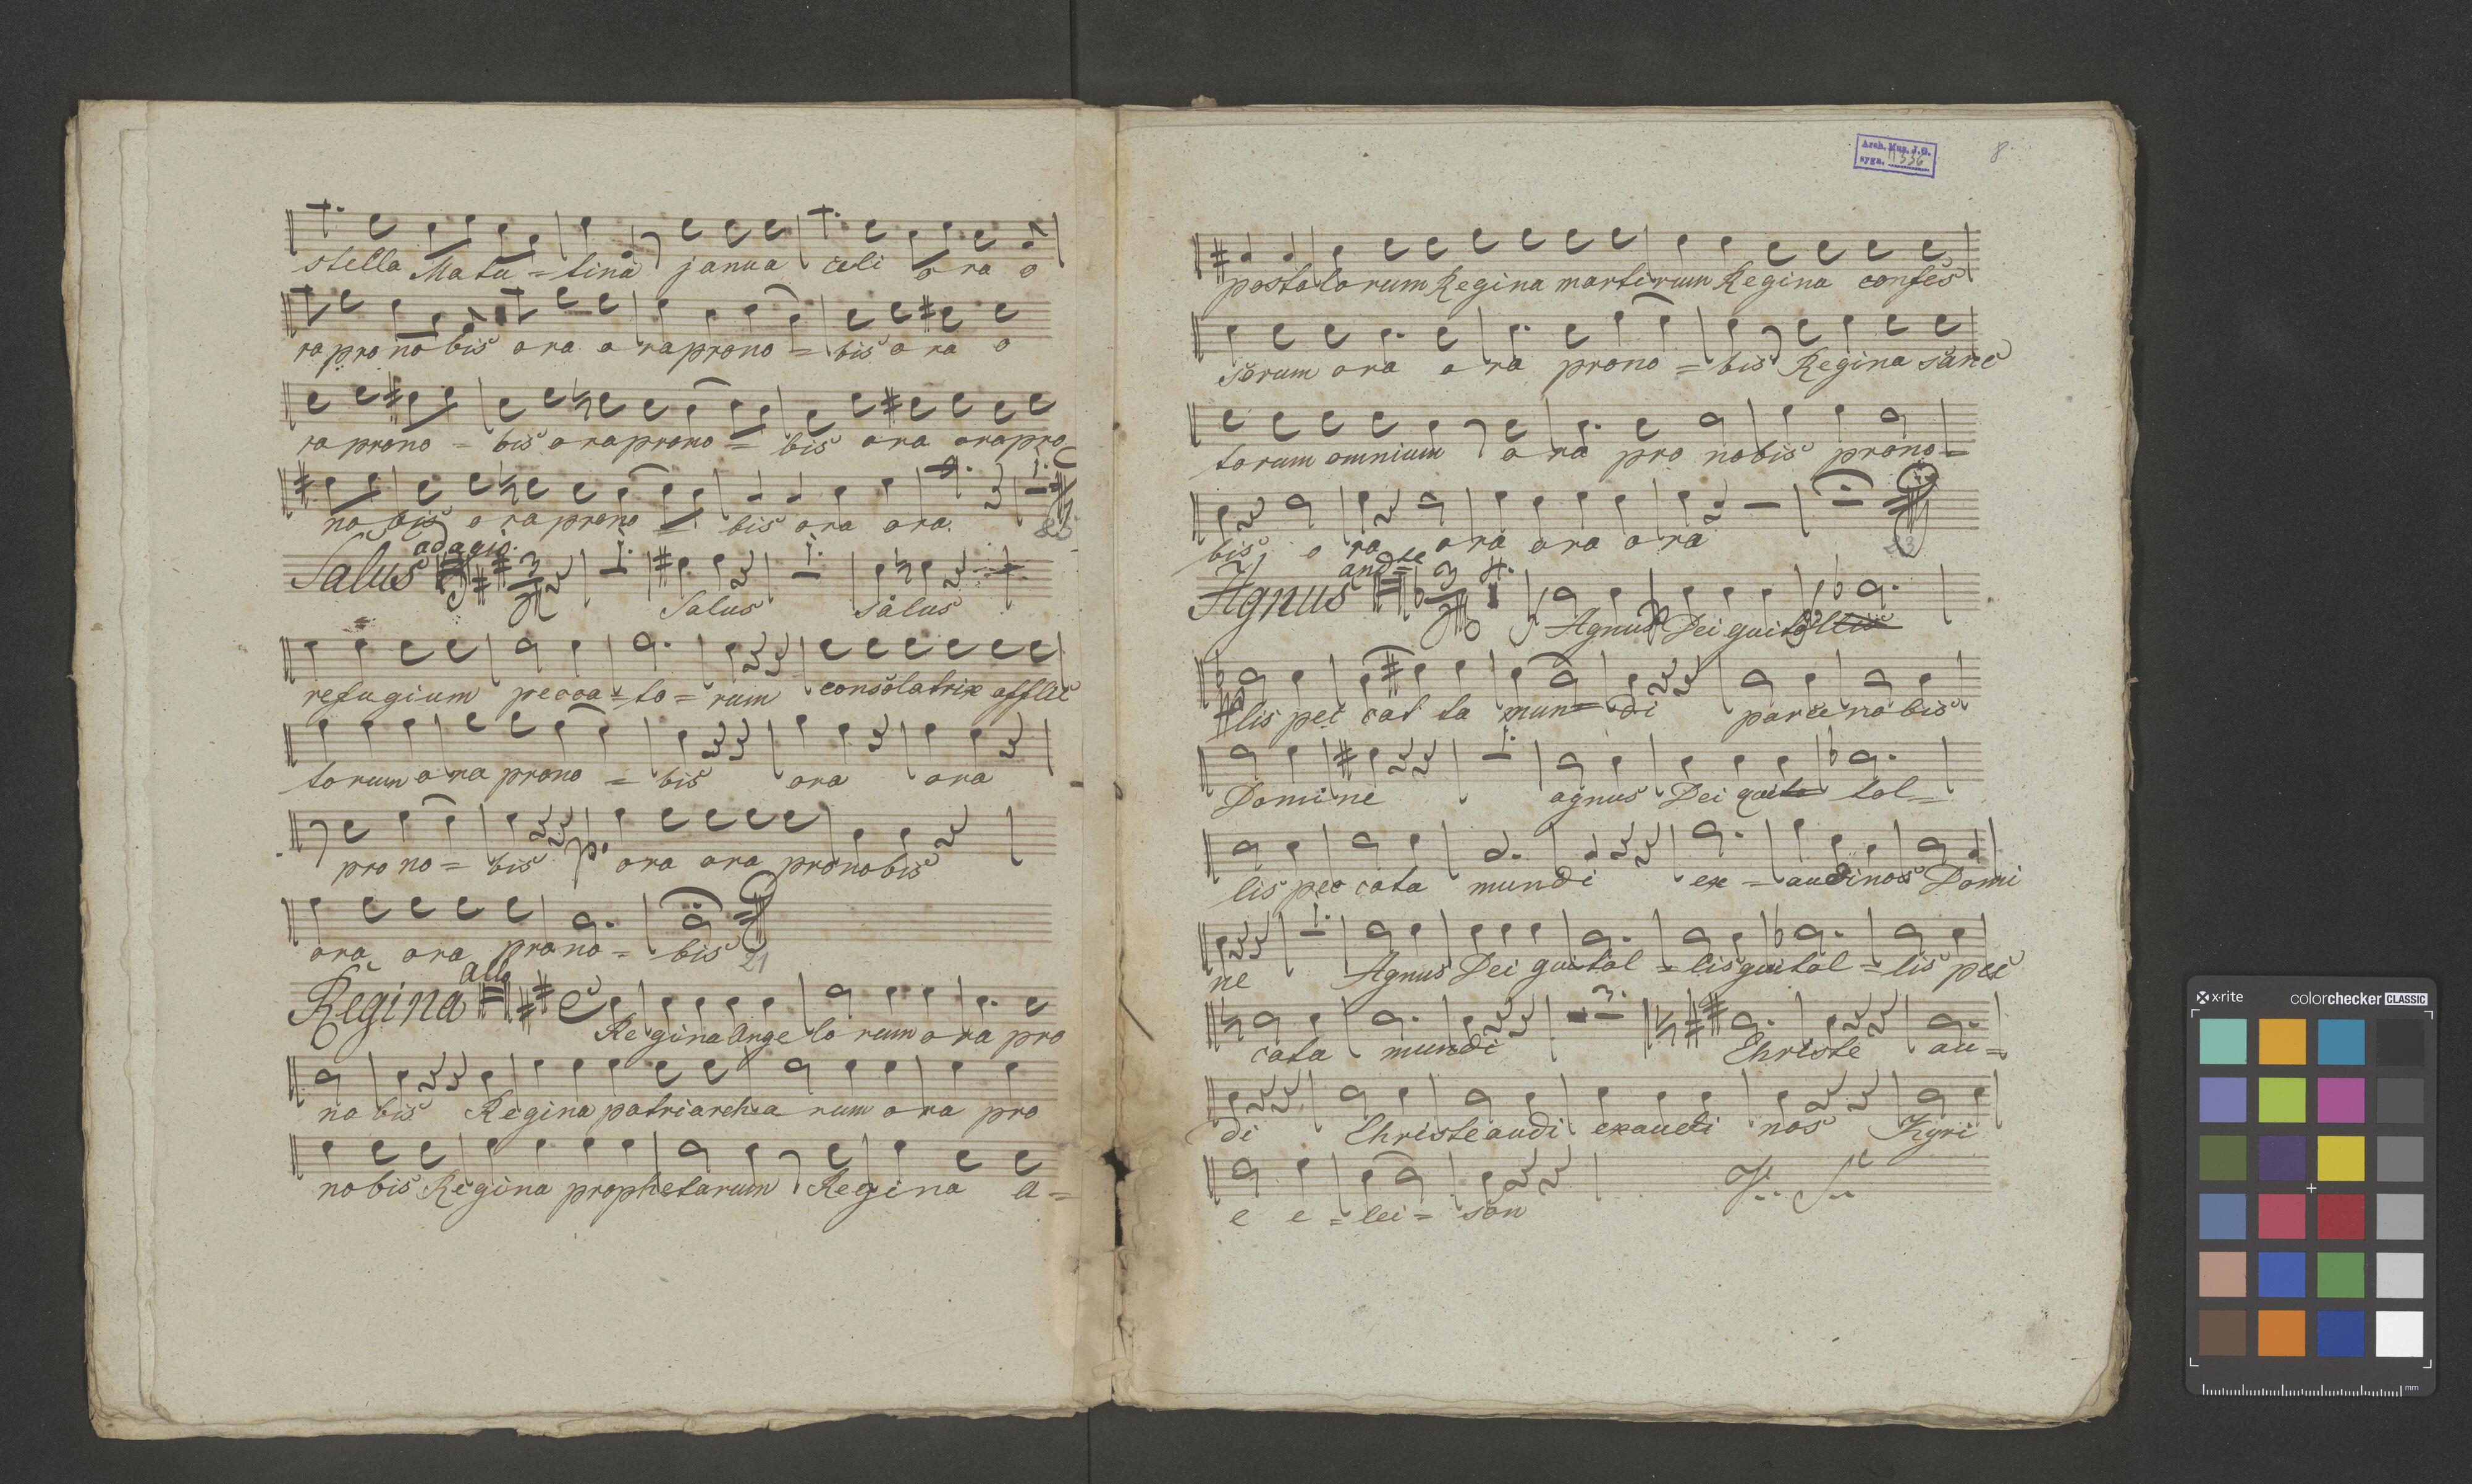 stella Matu = tina janua celi o ra o
ra pro no bis ora o ra prono = bis o ra o
ra prono = bis o ra prono = bis ora ora pro
no bis o ra prono = bis ora ora.
Salus adagio. 3 1. 1.
Salus Salus
refugium pecca = to = rum consolatrix afflic
torum ora prono = bis ora ora
pro no = bis p. ora ora pronobis
ora ora prono = bis
21
Regina all
Regina Ange lo rum ora pro
no bis Regina patriarcha rum ora pro
nobis Regina prophetarum Regina A =
Arch. Mus. J.G.
sygn. 1336
8
postolorum Regina martirum Regina confes
sorum ora o ra prono = bis Regina sanc
torum omnium o ra pro nobis prono =
bis o ra ora ora o ra
23
Agnus andte 3 4.
Agnus Dei qui tol
lis pec cat ta mun = di parce no bis
Domine agnus Dei qui tol =
lis pec cata mundi ex = audi nos Domi
ne Agnus Dei qui tol = lis qui tol = lis pec
cata mundi Christe au =
di Christe audi exaudi nos Kyri
e e = lei = son